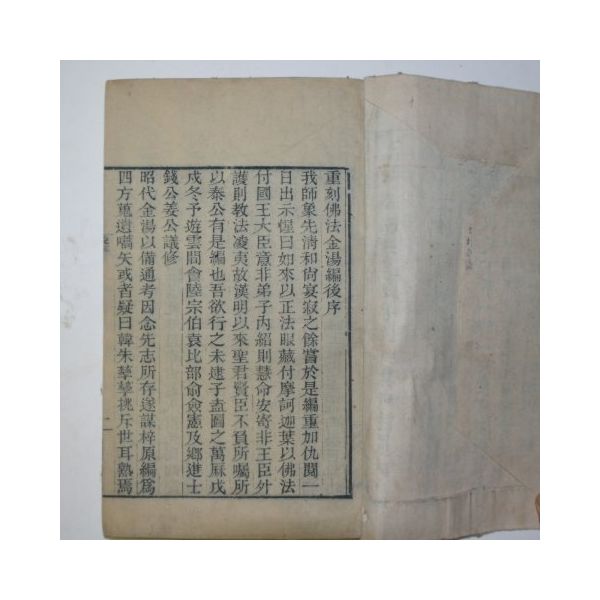 重刻佛法金湯編後序
我師象先清和尚宴寂之餘嘗於是編重加仇閱一
日出示惺曰如來以正法眼藏付摩訶迦葉以佛法
付國王大臣意非弟子內紹則慧命安寄非王臣外
護則教法凌夷故漢明以來聖君賢臣不負所囑所
以泰公有是編也吾欲行之未逮子盍圖之萬曆戊
戌冬予遊雲間會陸宗伯袁比部俞僉憲及鄉進士
錢公姜公議修
昭代金湯以備通考因念先志所存遂謀梓原編爲
四方蒐遺嚆矢或者疑曰韓朱孳孳挑斥世耳熟焉